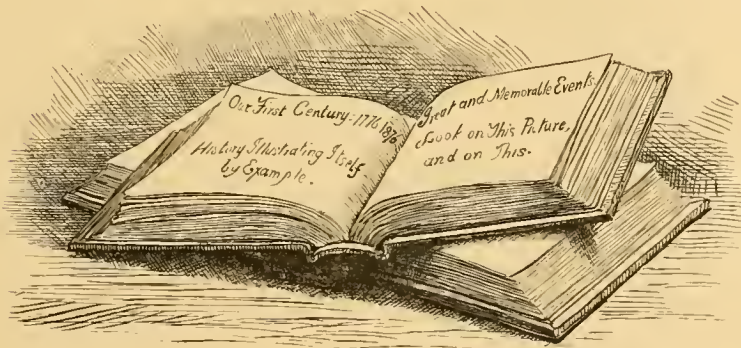 Our First Century: 1776 1876
History Illustrating Itself
by Example.
Great and Memorable Events.
Look on This Picture,
and on This.